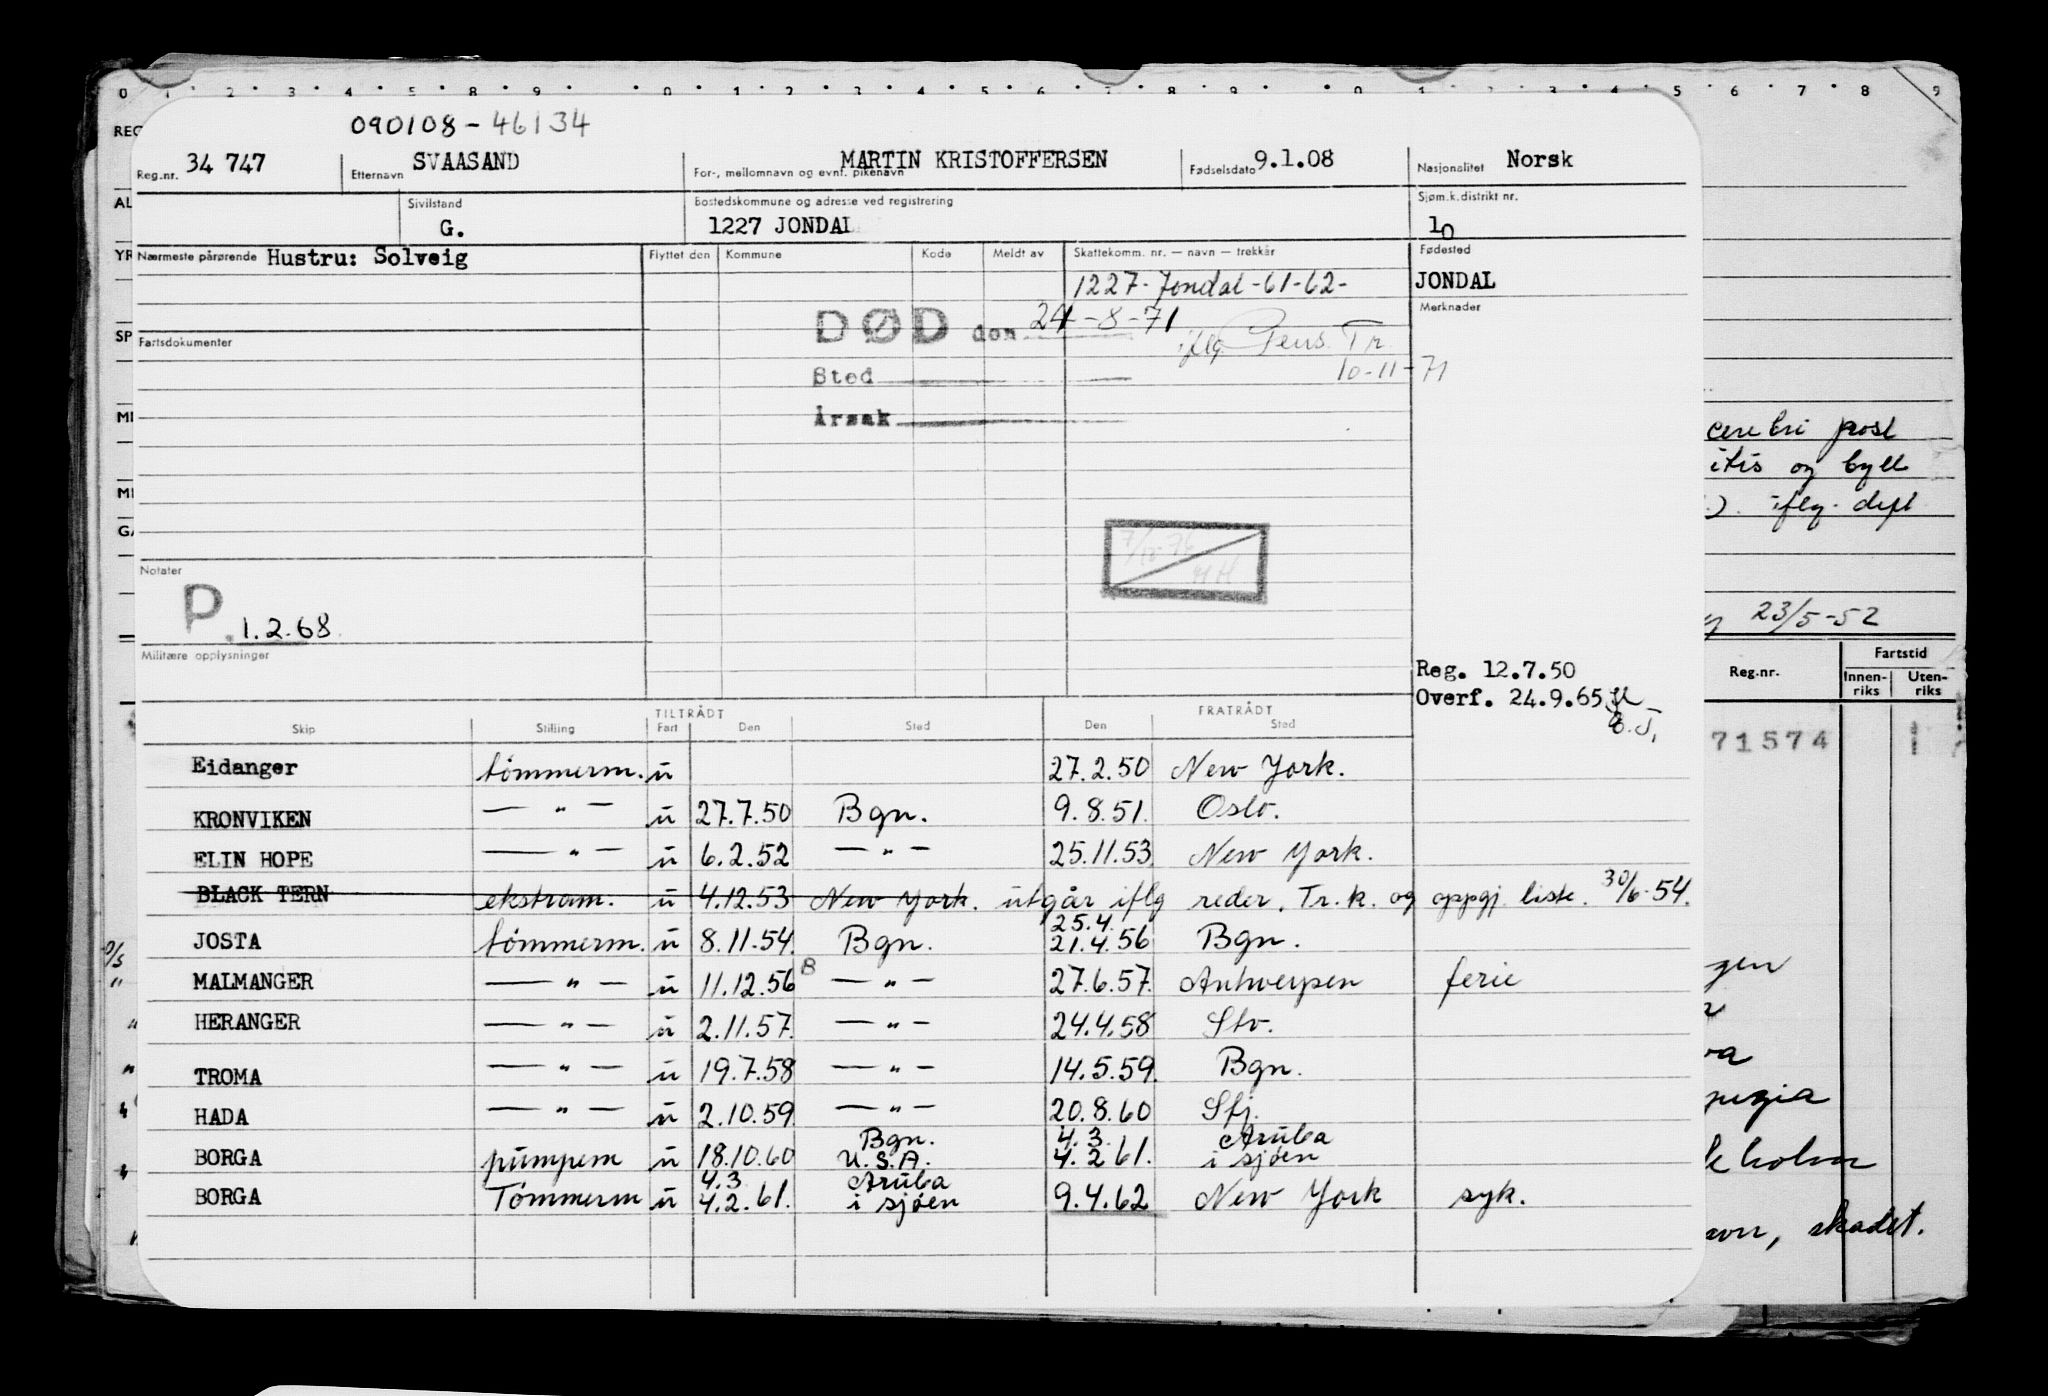 0 1 2 3 4 5 8 9 0 1 2 3 4 5 6 7 8 9 0 1 2 3 4 5 6 7 8 9
REG
090108-46134
Reg.nr. 34 747 Etternavn SVAASAND For-, mellomnavn og evnt. pikenavn MARTIN KRISTOFFERSEN Fødselsdato 9.1.08 Nasjonalitet Norsk
AL
Sivilstand G. Bostedskommune og adresse ved registrering 1227 JONDAL Sjøm.k.distrikt nr. 10
YR
Nærmeste pårørende Hustru: Solveig Flyttet den Kommune Kode Meldt av Skattekomm. nr. — navn — trekkår Fødested
1227-Jondal-61-62- JONDAL
Merknader
DØD den 24-8-71
SP
Fartsdokumenter iflg. Pens. Tr.
Sted 10-11-71
Årsak
cerebri post
itis og byll
iflg. dept
GA
Notater
P. 1.2.68
23/5-52
Militære opplysninger
Reg. 12.7.50
Overf. 24.9.65
Reg.nr. Fartstid
Innen-riks Uten-riks
71574
TILTRÅDT FRATRÅDT
Skip Stilling Fart Den Sted Den Sted
Eidanger tömmerm. u 27.2.50 New York.
KRONVIKEN — " — u 27.7.50 Bgn. 9.8.51. Oslo.
ELIN HOPE — " — u 6.2.52 — " — 25.11.53. New York.
BLACK TERN ekstram. u 4.12.53 New York. utgår iflg reder, Tr.k. og oppgj. liste. 30/6-54.
25.4.
JOSTA tömmerm. u 8.11.54. Bgn. 21.4.56 Bgn.
MALMANGER — " — u 11.12.56 B — " — 27.6.57. Antwerpen ferie
HERANGER — " — u 2.11.57. — " — 24.4.58 Stv.
TROMA — " — u 19.7.58 — " — 14.5.59. Bgn.
HADA — " — u 2.10.59 — " — 20.8.60 Sfj.
Bgn. 4.3. Aruba
BORGA pumpem u 18.10.60 U.S.A. 4.2 61. i sjøen
4.3 Aruba
BORGA Tömmerm u 4.2.61. i sjøen 9.4.62 New York syk.
skadet.